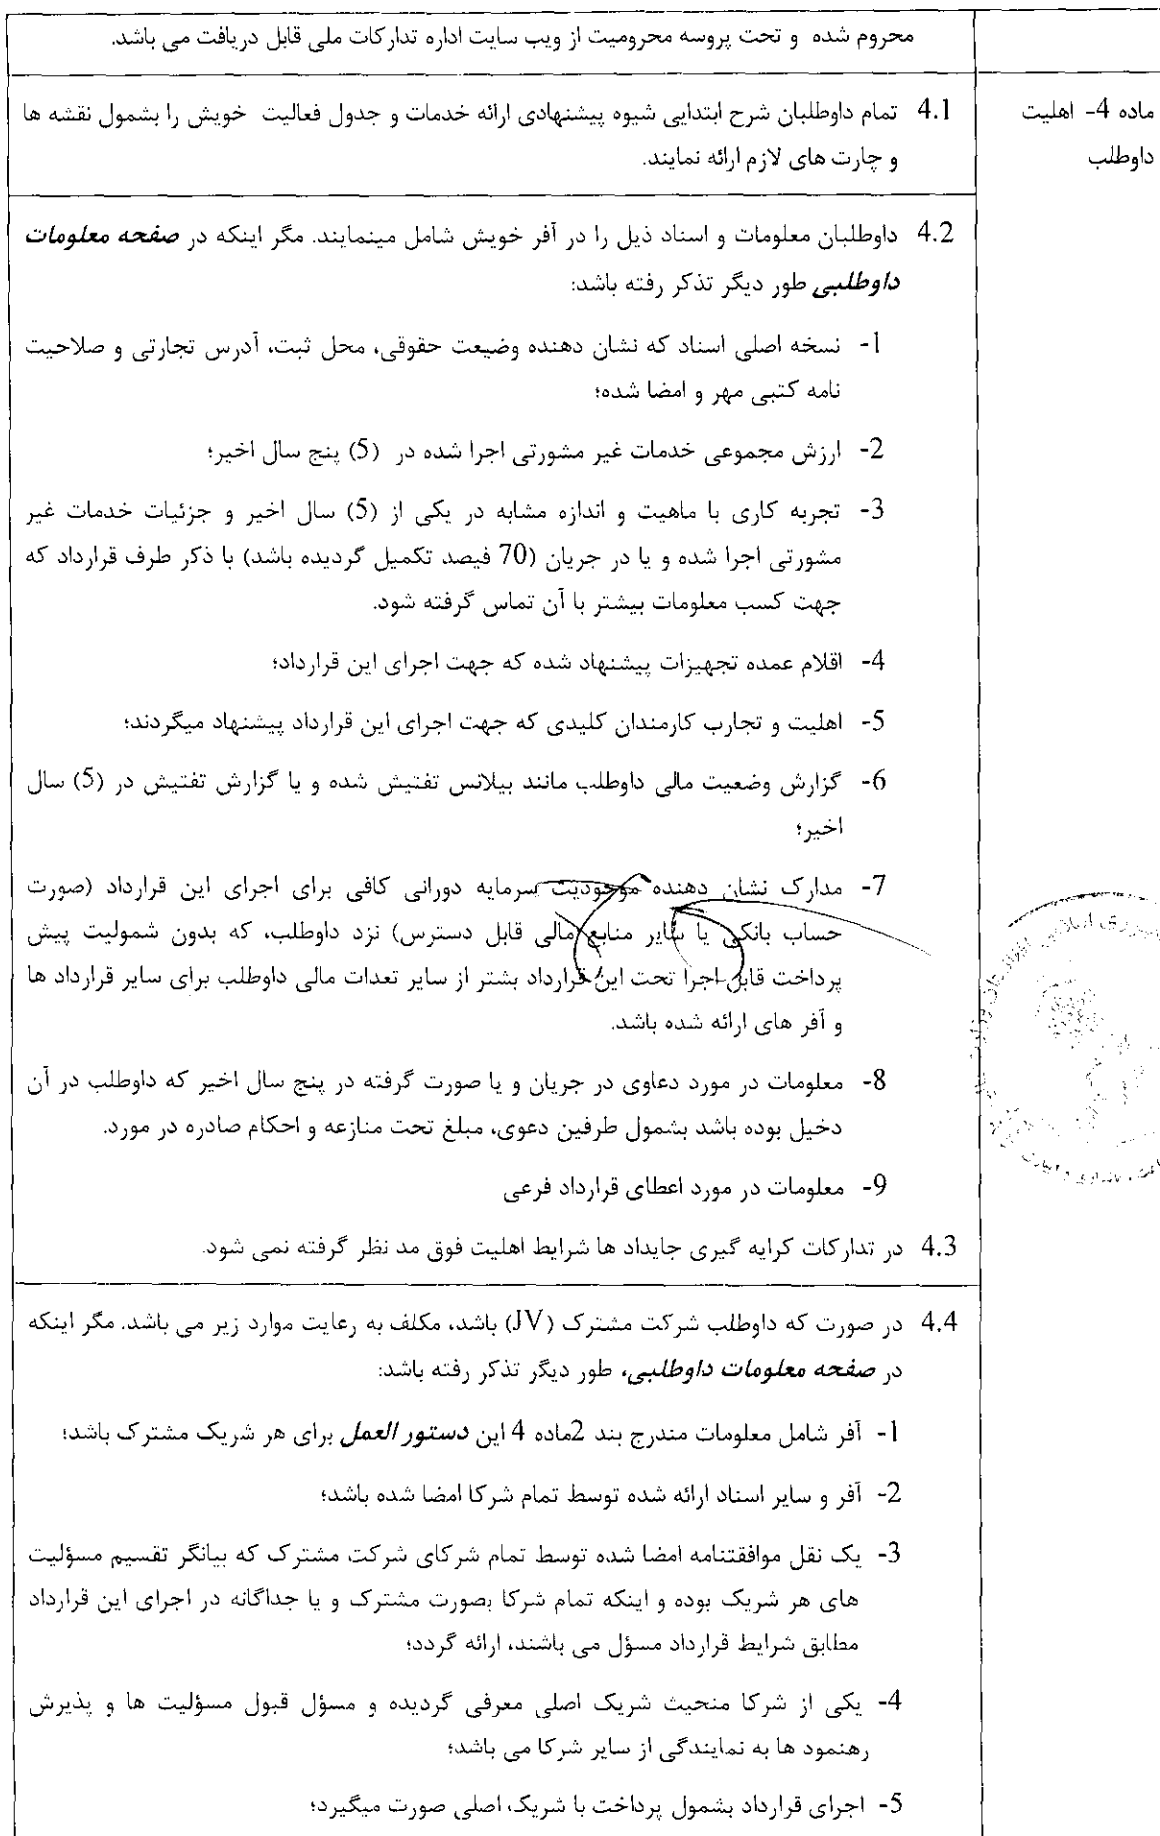 محروم شده و تحت پروسه محرومیت از ویب سایت اداره تدارکات ملی قابل دریافت می باشد.
ماده 4- اهلیت
داوطلب
4.1 تمام داوطلبان شرح ابتدایی شیوه پیشنهادی ارائه خدمات و جدول فعالیت خویش را بشمول نقشه ها
و چارت های لازم ارائه نمایند.
4.2 داوطلبان معلومات و اسناد ذیل را در آفر خویش شامل مینمایند. مگر اینکه در صفحه معلومات
داوطلبی طور دیگر تذکر رفته باشد:
1- نسخه اصلی اسناد که نشان دهنده وضیعت حقوقی، محل ثبت، آدرس تجارتی و صلاحیت
نامه کتبی مهر و امضا شده؛
2- ارزش مجموعی خدمات غیر مشورتی اجرا شده در (5) پنج سال اخیر؛
3- تجربه کاری با ماهیت و اندازه مشابه در یکی از (5) سال اخیر و جزئیات خدمات غیر
مشورتی اجرا شده و یا در جریان (70 فیصد تکمیل گردیده باشد) با ذکر طرف قرارداد که
جهت کسب معلومات بیشتر با آن تماس گرفته شود.
4- اقلام عمده تجهیزات پیشنهاد شده که جهت اجرای این قرارداد؛
5- اهلیت و تجارب کارمندان کلیدی که جهت اجرای این قرارداد پیشنهاد میگردند؛
6- گزارش وضعیت مالی داوطلب مانند بیلانس تفتیش شده و یا گزارش تفتیش در (5) سال
اخیر؛
7- مدارک نشان دهنده موجودیت سرمایه دورانی کافی برای اجرای این قرارداد (صورت
حساب بانکی یا سایر منابع مالی قابل دسترس) نزد داوطلب، که بدون شمولیت پیش
پرداخت قابل اجرا تحت این قرارداد بشتر از سایر تعدات مالی داوطلب برای سایر قرارداد ها
و آفر های ارائه شده باشد.
8- معلومات در مورد دعاوی در جریان و یا صورت گرفته در پنج سال اخیر که داوطلب در آن
دخیل بوده باشد بشمول طرفین دعوی، مبلغ تحت منازعه و احکام صادره در مورد.
9- معلومات در مورد اعطای قرارداد فرعی
4.3 در تدارکات کرایه گیری جایداد ها شرایط اهلیت فوق مد نظر گرفته نمی شود.
4.4 در صورت که داوطلب شرکت مشترک (JV) باشد، مکلف به رعایت موارد زیر می باشد. مگر اینکه
در صفحه معلومات داوطلبی، طور دیگر تذکر رفته باشد:
1- آفر شامل معلومات مندرج بند 2ماده 4 این دستور العمل برای هر شریک مشترک باشد؛
2- آفر و سایر اسناد ارائه شده توسط تمام شرکا امضا شده باشد؛
3- یک نقل موافقتنامه امضا شده توسط تمام شرکای شرکت مشترک که بیانگر تقسیم مسؤلیت
های هر شریک بوده و اینکه تمام شرکا بصورت مشترک و یا جداگانه در اجرای این قرارداد
مطابق شرایط قرارداد مسؤل می باشند، ارائه گردد؛
4- یکی از شرکا منحیث شریک اصلی معرفی گردیده و مسؤل قبول مسؤلیت ها و پذیرش
رهنمود ها به نمایندگی از سایر شرکا می باشد؛
5- اجرای قرارداد بشمول پرداخت با شریک اصلی صورت میگیرد؛